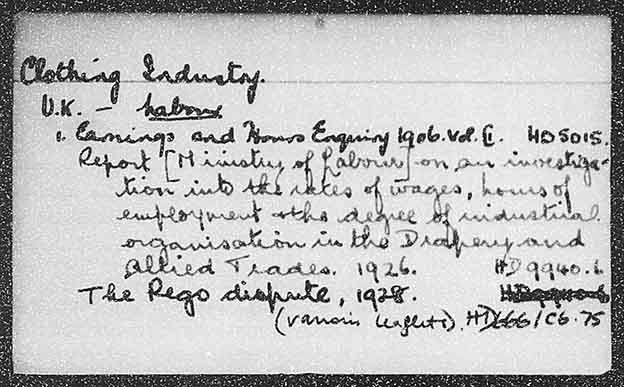 Clothing Industry.
U.K. – Labour
1. Earnings and Hours Enquiry 1906. Vol. II. HD5015.
Report [Ministry of Labour] on an investiga-
tion into the rates of wages, hours of
employment & the degree of industrial
organisation in the Drapery and
Allied Trades. 1926. HD9940.6
The Rego dispute, 1928.
(various leaflets). /C6.75